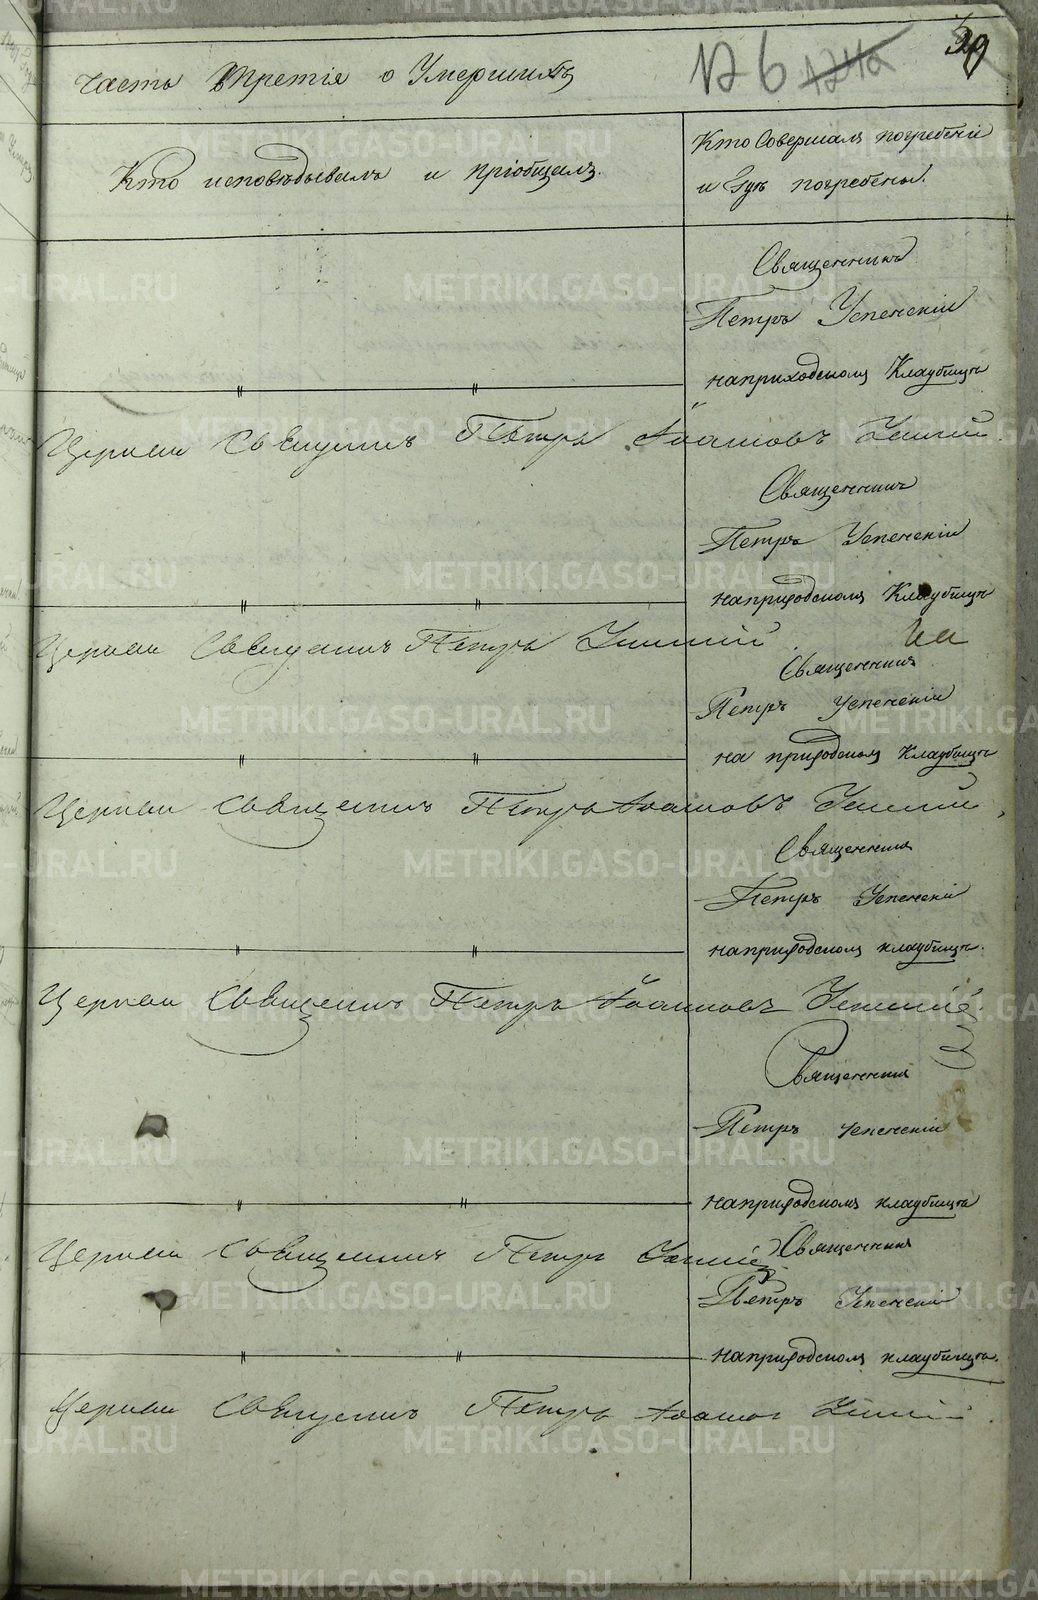 часть третія о Умершихъ
126
39
Кто исповѣдывалъ и пріобщалъ.
Кто Совершалъ погребеніе
и гдѣ погребены.
Священникъ
Петръ Успенскій
наприходскомъ Кладбищѣ
Церкви Священникъ Петръ Іоанновъ
Священникъ
Петръ Успенскій
наприходскомъ Кладбищѣ
Церкви Священникъ Петръ
Священникъ
Петръ Успенскій
на приходскомъ Кладбищѣ
Церкви Священникъ Петръ Іоанновъ
Священникъ
Петръ Успенскій
наприходскомъ кладбищѣ.
Церкви Священникъ Петръ Іоанновъ
Священникъ
Петръ Успенскій
наприходскомъ кладбищѣ
Церкви Священникъ Петръ
Священникъ
Петръ Успенскій
наприходскомъ кладбищѣ.
Церкви Священникъ Петръ
METRIKI.GASO-URAL.RU